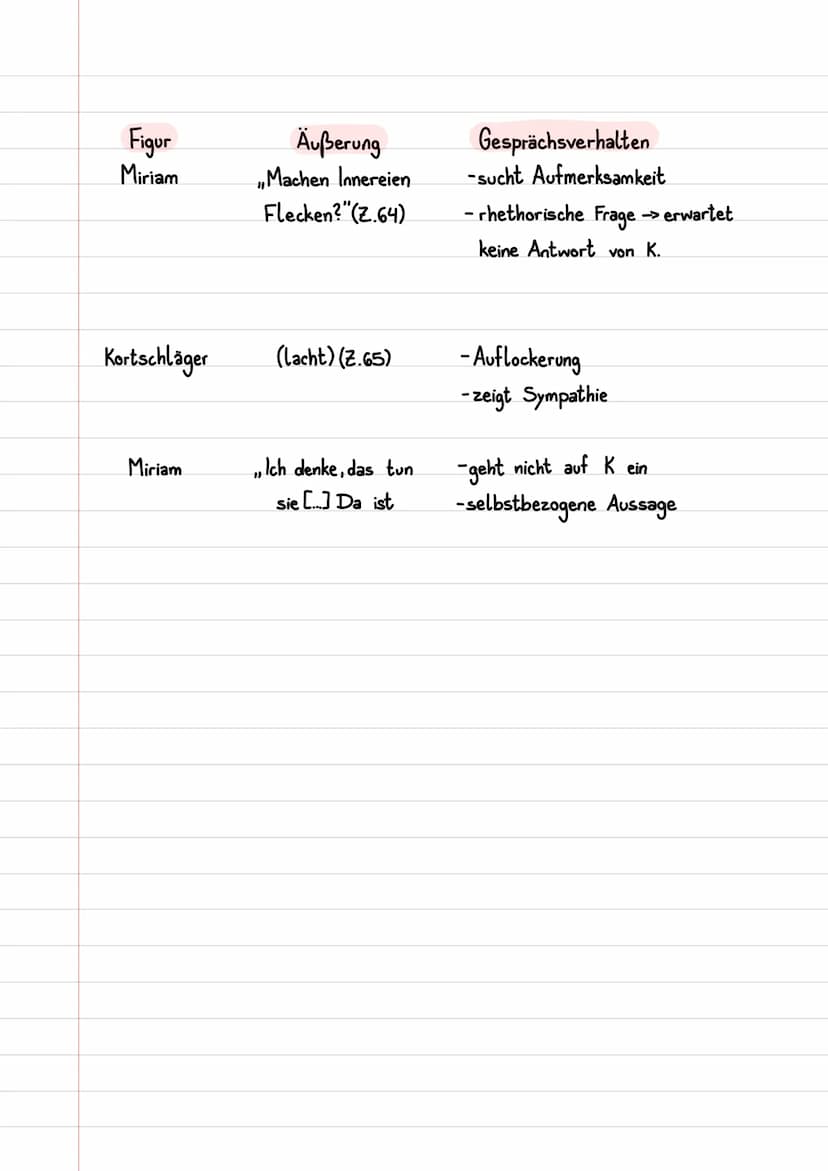 Figur Äußerung Gesprächsverhalten
Miriam „Machen Innereien -sucht Aufmerksamkeit
Flecken?"(Z.64) - rhethorische Frage → erwartet
keine Antwort von K.
Kortschläger (lacht) (Z.65) - Auflockerung
-zeigt Sympathie
Miriam „Ich denke, das tun -geht nicht auf K ein
sie [...] Da ist -selbstbezogene Aussage